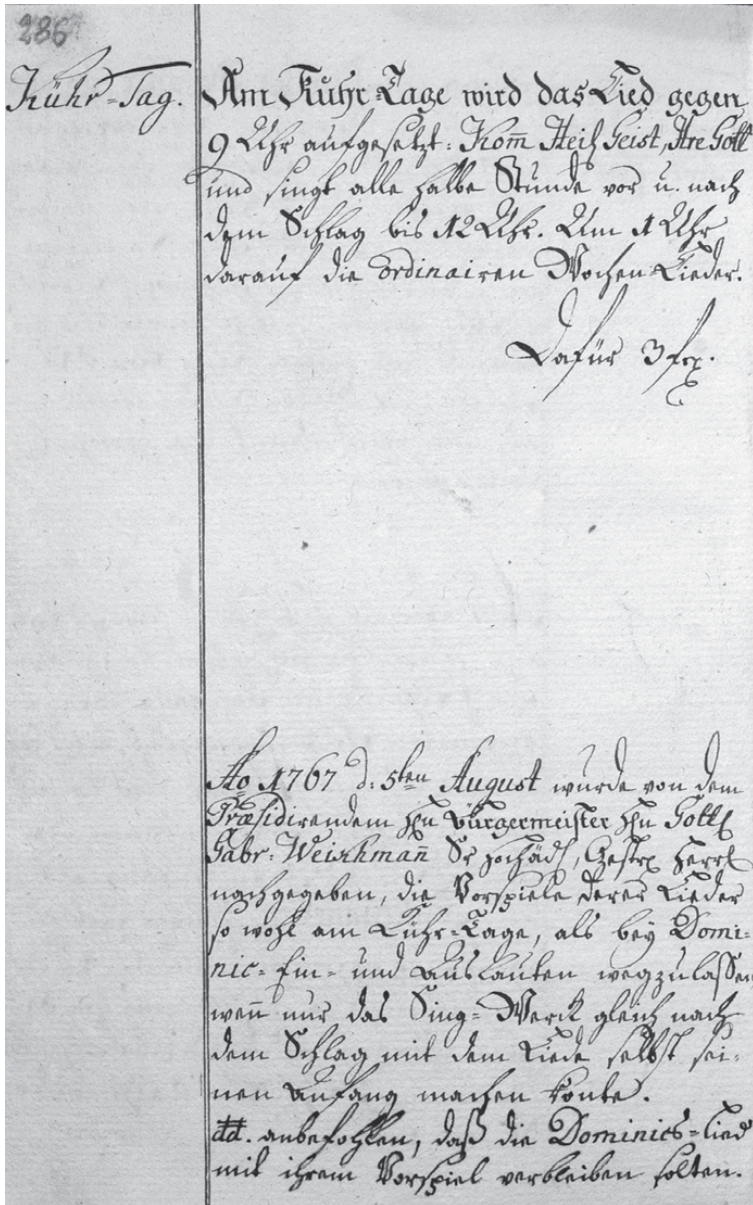 286
Kühr-Tag.
Am Kühr-Tage wird das Lied gegen
9 Uhr aufgesetzt: Kom̅ Heil Geist, Hre Gott
und singt alle halbe Stunde vor u. nach
dem Schlag bis 12 Uhr. Um 1 Uhr
darauf die ordinairen Wochen-Lieder.
Dafür 3
Ao 1767 d: 5ten August wurde von dem
Præsidirendem Hn Bürgermeister Hn Gottl
Gabr: Weichman̅ Sr Herrl
nachgegeben, die Vorspiele derer Lieder
so wohl am Kühr-Tage, als bey Domi-
nic- Ein- und Auslauten wegzulassen
wen̅ nur das Sing-Werck gleich nach
dem Schlag mit dem Liede selbst sei-
nen Anfang machen konte.
anbefohlen, daß die Dominics-Lied
mit ihrem Vorspiel verbleiben solten.